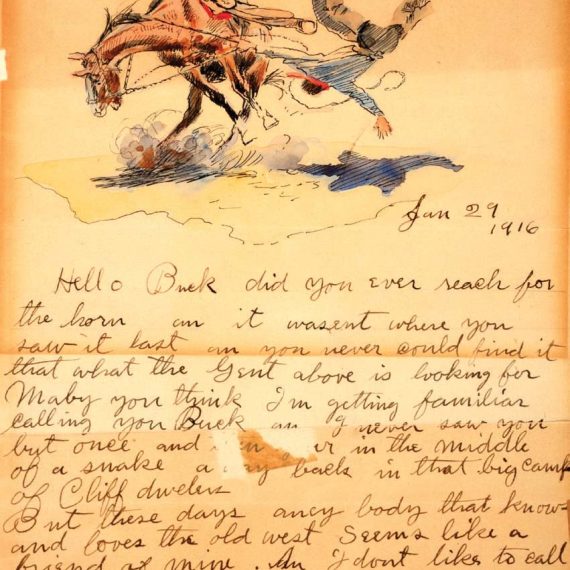 Jan 29
1916
Hello Buck did you ever reach for
the horn an it wasent where you
saw it last an you never could find it
that what the Gent above is looking for
Maby you think I'm getting familiar
calling you Buck an I never saw you
but once and in the middle
of a snake a way back in that big camp
of Cliff dwelers
But these days aney body that knows
and loves the old west Seems like a
friend of mine. An I dont like to call